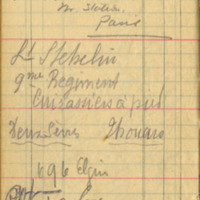 Paris
Lt Stehelin
9me Régiment
Cuirassiers à pied
Deux Sèvres Thouars
696 Elgin